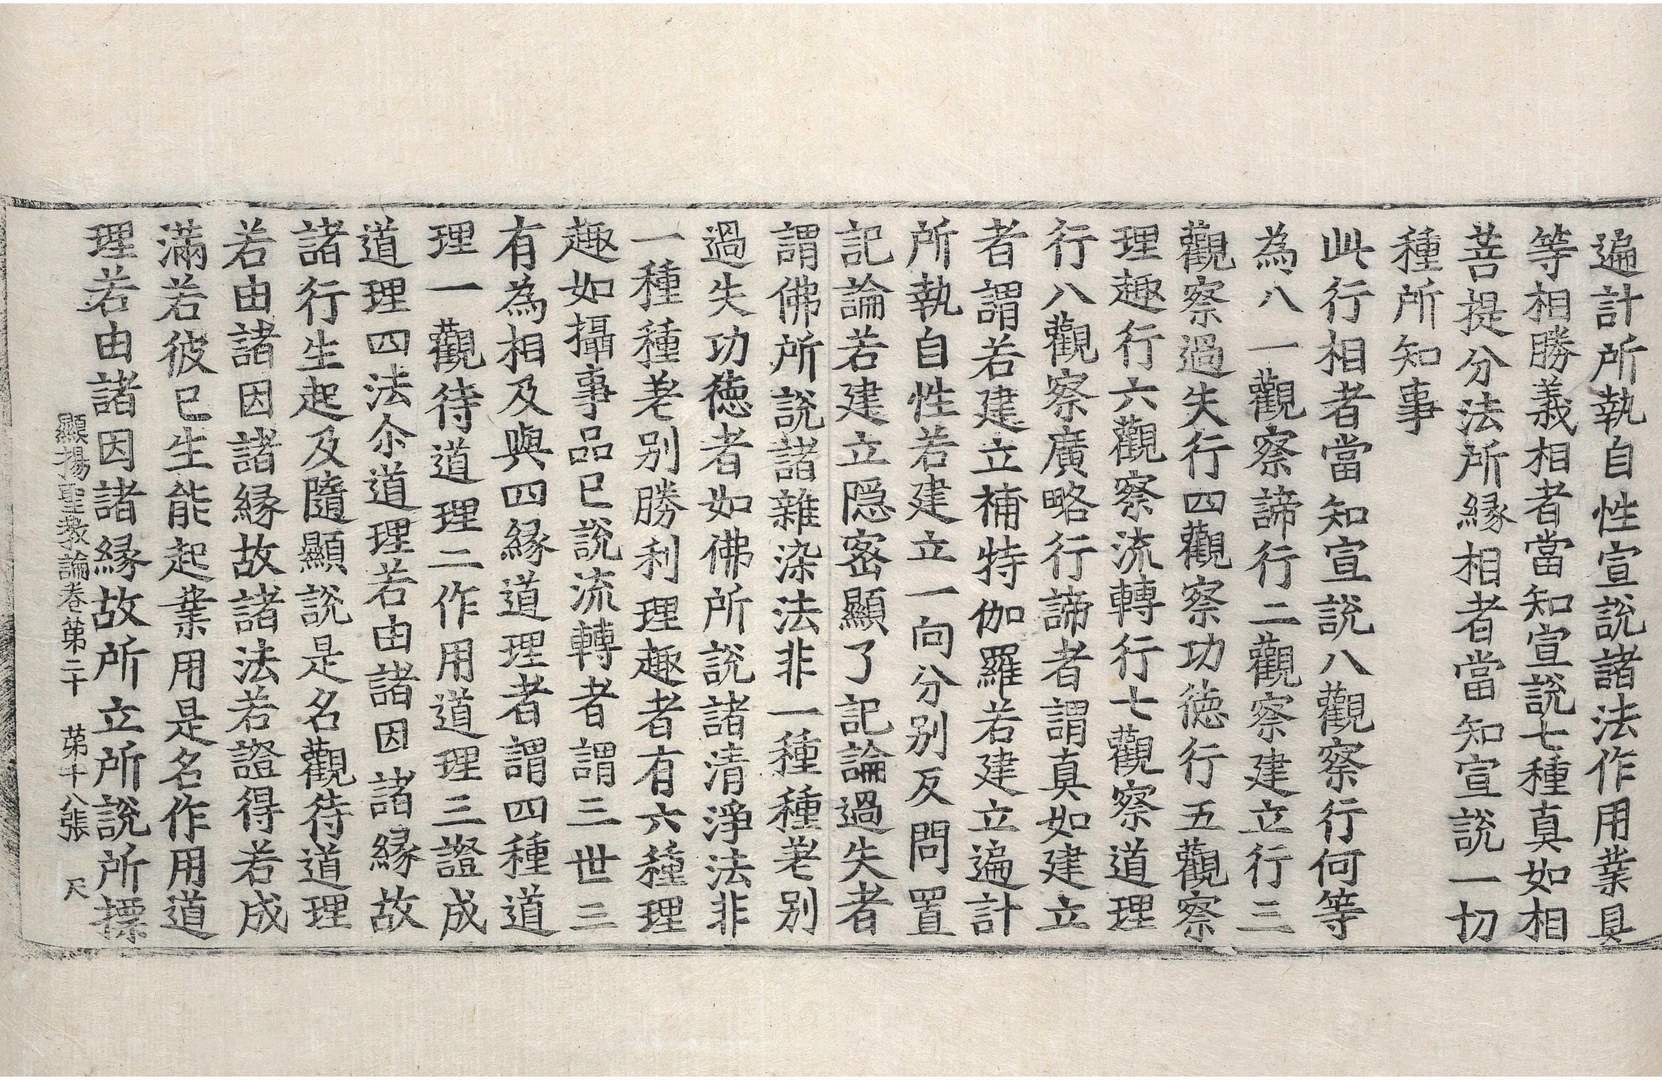 遍計所執自性宣說諸法作用業具
等相勝義相者當知宣說七種真如相
菩提分法所緣相者當知宣說一切
種所知事
此行相者當知宣說八觀察行何等
為八一觀察諦行二觀察建立行三
觀察過失行四觀察功德行五觀察
理趣行六觀察流轉行七觀察道理
行八觀察廣略行諦者謂真如建立
者謂若建立補特伽羅若建立遍計
所執自性若建立一向分別反問置
記論若建立隱密顯了記論過失者
謂佛所說諸雜染法非一種種差別
過失功德者如佛所說諸清淨法非
一種種差別勝利理趣者有六種理
趣如攝事品已說流轉者謂三世三
有為相及與四緣道理者謂四種道
理一觀待道理二作用道理三證成
道理四法尒道理若由諸因諸緣故
諸行生起及隨顯說是名觀待道理
若由諸因諸緣故諸法若證得若成
滿若彼已生能起業用是名作用道
理若由諸因諸緣故所立所說所摽
顯揚聖教論卷第二十 第十八張 尺